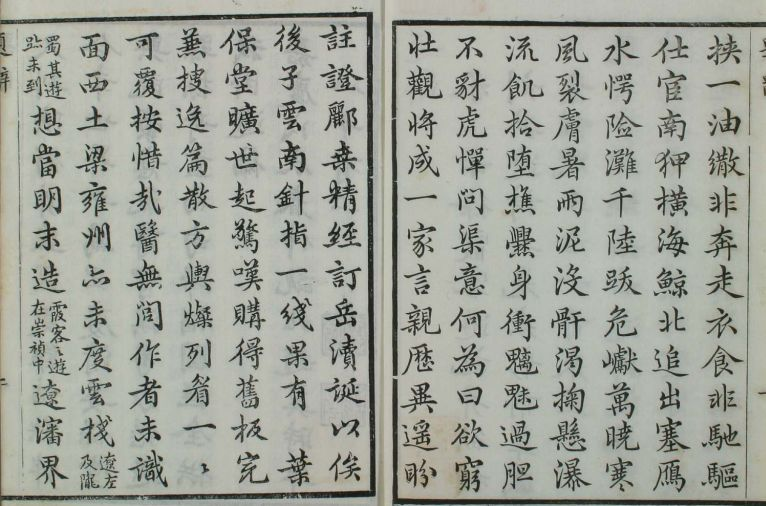 挟一油繖非奔走衣食非馳驅
仕宦南狎橫海鯨北追出塞鴈
水愕险灘千陸跋危巘萬晓寒
風裂膚暑雨泥没骭渇掬懸瀑
流飢拾堕樵爨身衝魑魅過胆
不豺虎憚问渠意何為曰欲窮
壮觀将成一家言親歴異遥盼
註證酈桒精經訂岳瀆誕以俟
後子雲南針指一线果有葉
保堂曠世起驚嘆購得舊板完
蕪搜逸篇散方輿燦列眉一〻
可覆按惜哉醫無閭作者未識
面西土梁雍州亦未度雲棧遼左及隴
蜀其遊趾未到想當明末造霞客之遊在崇禎中遼瀋界